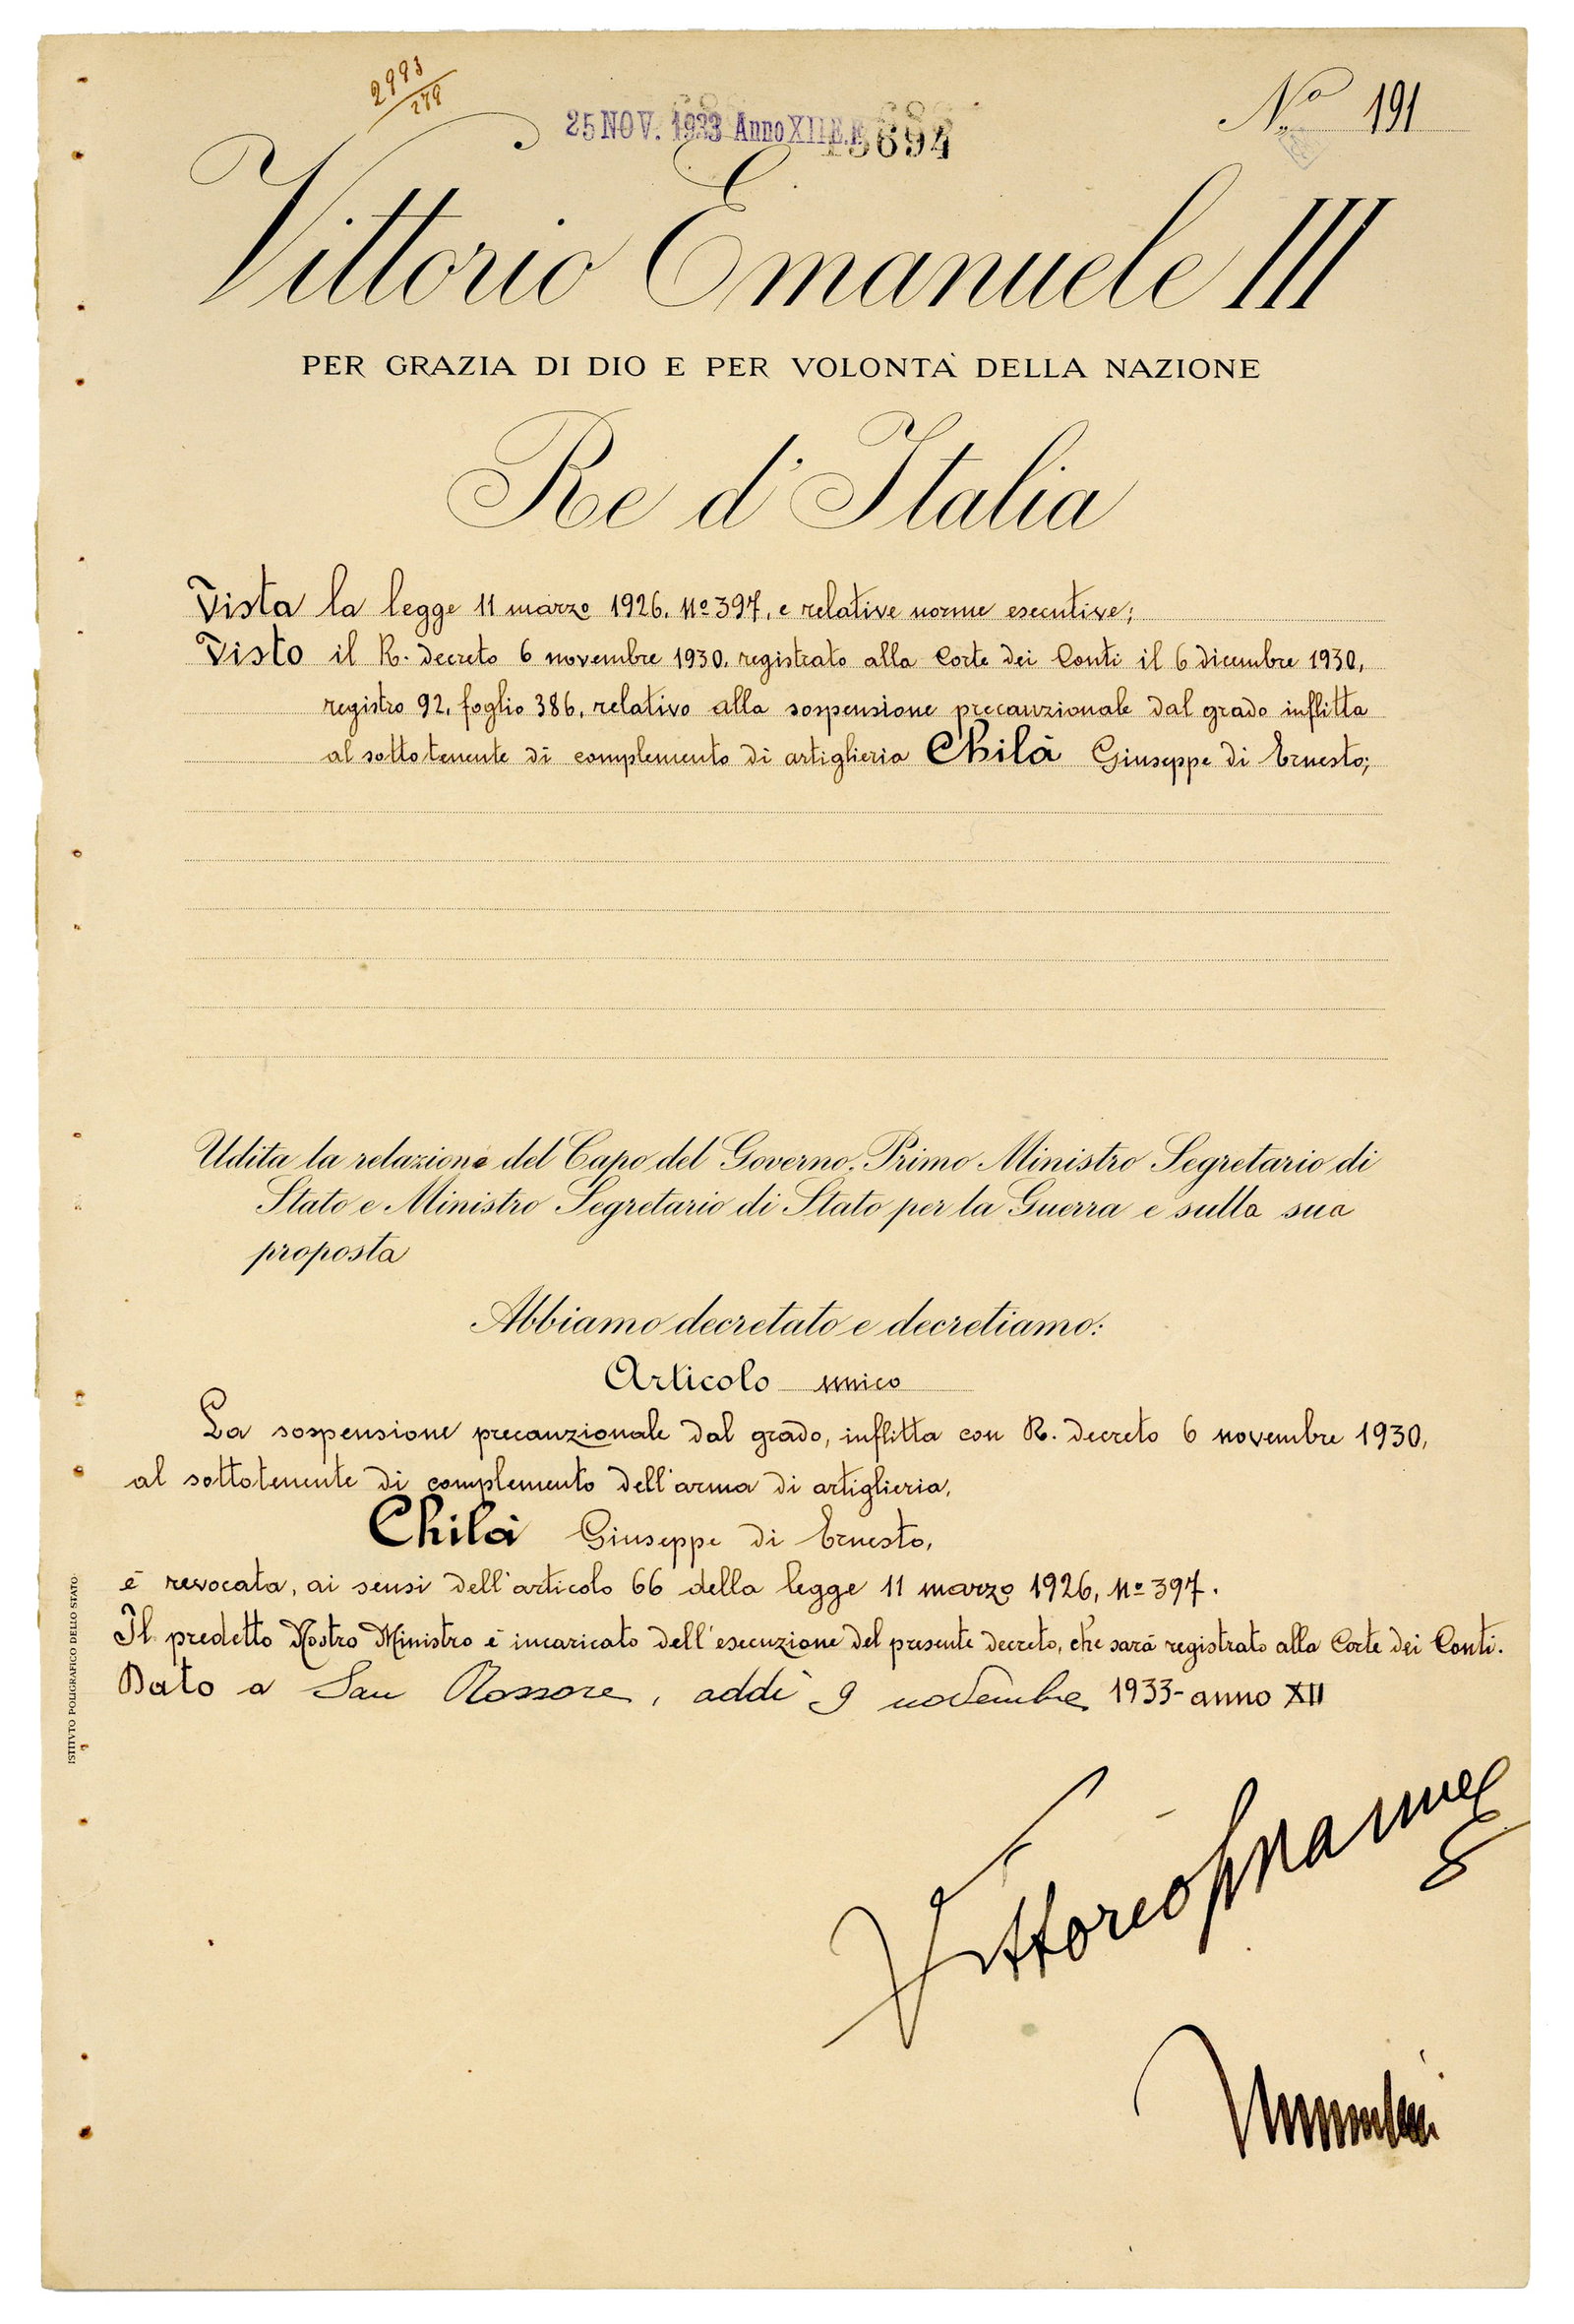 2993
279
25 NOV. 1933 Anno XII E.F.
Nº 191
Vittorio Emanuele III
PER GRAZIA DI DIO E PER VOLONTÀ DELLA NAZIONE
Re d'Italia
Vista la legge 11 marzo 1926, Nº 397, e relative norme esecutive;
Visto il R. decreto 6 novembre 1930, registrato alla Corte dei Conti il 6 dicembre 1930,
registro 92, foglio 386, relativo alla sospensione precauzionale dal grado inflitta
al sottotenente di complemento di artiglieria Chilà Giuseppe di Ernesto;
Udita la relazione del Capo del Governo, Primo Ministro Segretario di
Stato e Ministro Segretario di Stato per la Guerra e sulla sua
proposta
Abbiamo decretato e decretiamo:
Articolo unico
La sospensione precauzionale dal grado, inflitta con R. decreto 6 novembre 1930,
al sottotenente di complemento dell'arma di artiglieria,
Chilà Giuseppe di Ernesto,
è revocata, ai sensi dell'articolo 66 della legge 11 marzo 1926, Nº 397.
Il predetto Nostro Ministro è incaricato dell'esecuzione del presente decreto, che sarà registrato alla Corte dei Conti.
Dato a San Rossore, addì 9 novembre 1933 - anno XII
ISTITVTO POLIGRAFICO DELLO STATO
Vittorio Emanuele
Mussolini